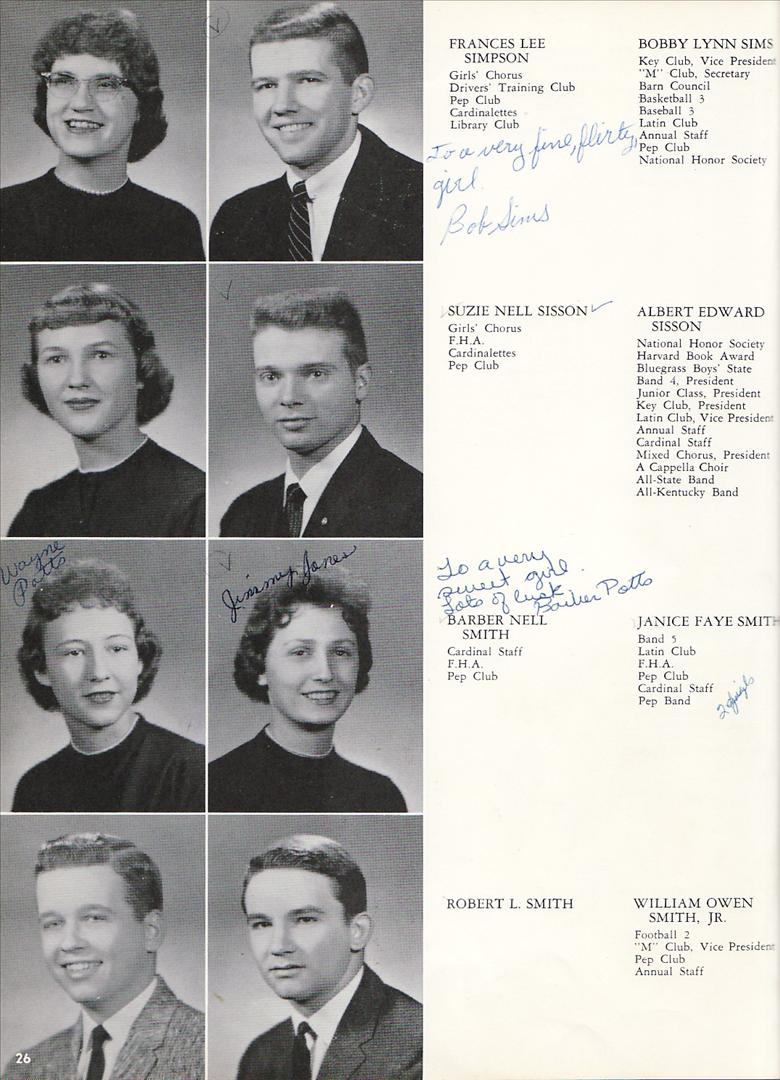 FRANCES LEE
SIMPSON
Girls' Chorus
Drivers' Training Club
Pep Club
Cardinalettes
Library Club
To a very fine, flirty,
girl.
Bob Sims
BOBBY LYNN SIMS
Key Club, Vice President
"M" Club, Secretary
Barn Council
Basketball 3
Baseball 3
Latin Club
Annual Staff
Pep Club
National Honor Society
SUZIE NELL SISSON
Girls' Chorus
F.H.A.
Cardinalettes
Pep Club
ALBERT EDWARD
SISSON
National Honor Society
Harvard Book Award
Bluegrass Boys' State
Band 4, President
Junior Class, President
Key Club, President
Latin Club, Vice President
Annual Staff
Cardinal Staff
Mixed Chorus, President
A Cappella Choir
All-State Band
All-Kentucky Band
Wayne
Potts
Jimmey Jones
To a very
sweet girl.
Lots of luck
Barber Potts
BARBER NELL
SMITH
Cardinal Staff
F.H.A.
Pep Club
JANICE FAYE SMITH
Band 5
Latin Club
F.H.A.
Pep Club
Cardinal Staff
Pep Band
2
ROBERT L. SMITH
WILLIAM OWEN
SMITH, JR.
Football 2
"M" Club, Vice President
Pep Club
Annual Staff
26